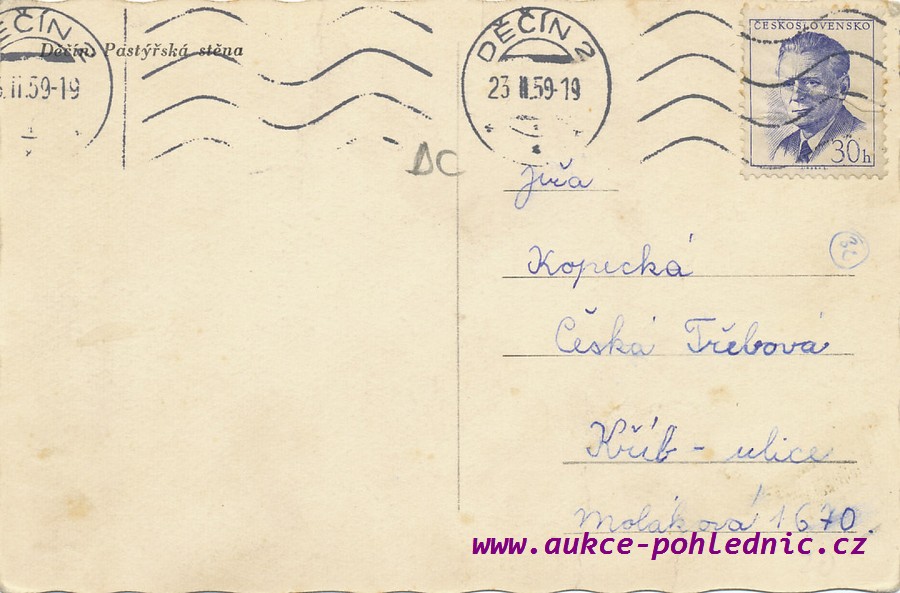 Děčín, Pastýřská stěna
DĚČÍN 2
.II.59-19
DĚČÍN 2
23.II.59-19
ČESKOSLOVENSKO
30h
DC
Jiřa
Kopecká
Česká Třebová
Kříb - ulice
Moláková 1670.
www.aukce-pohlednic.cz